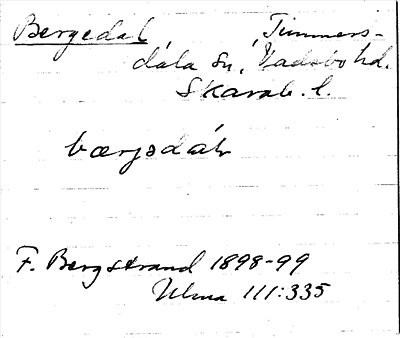 Bergedal, Timmers-
dala sn, Vadsbo hd.
Skarab. l.
F. Bergstrand 1898-99
Ulma 111:335